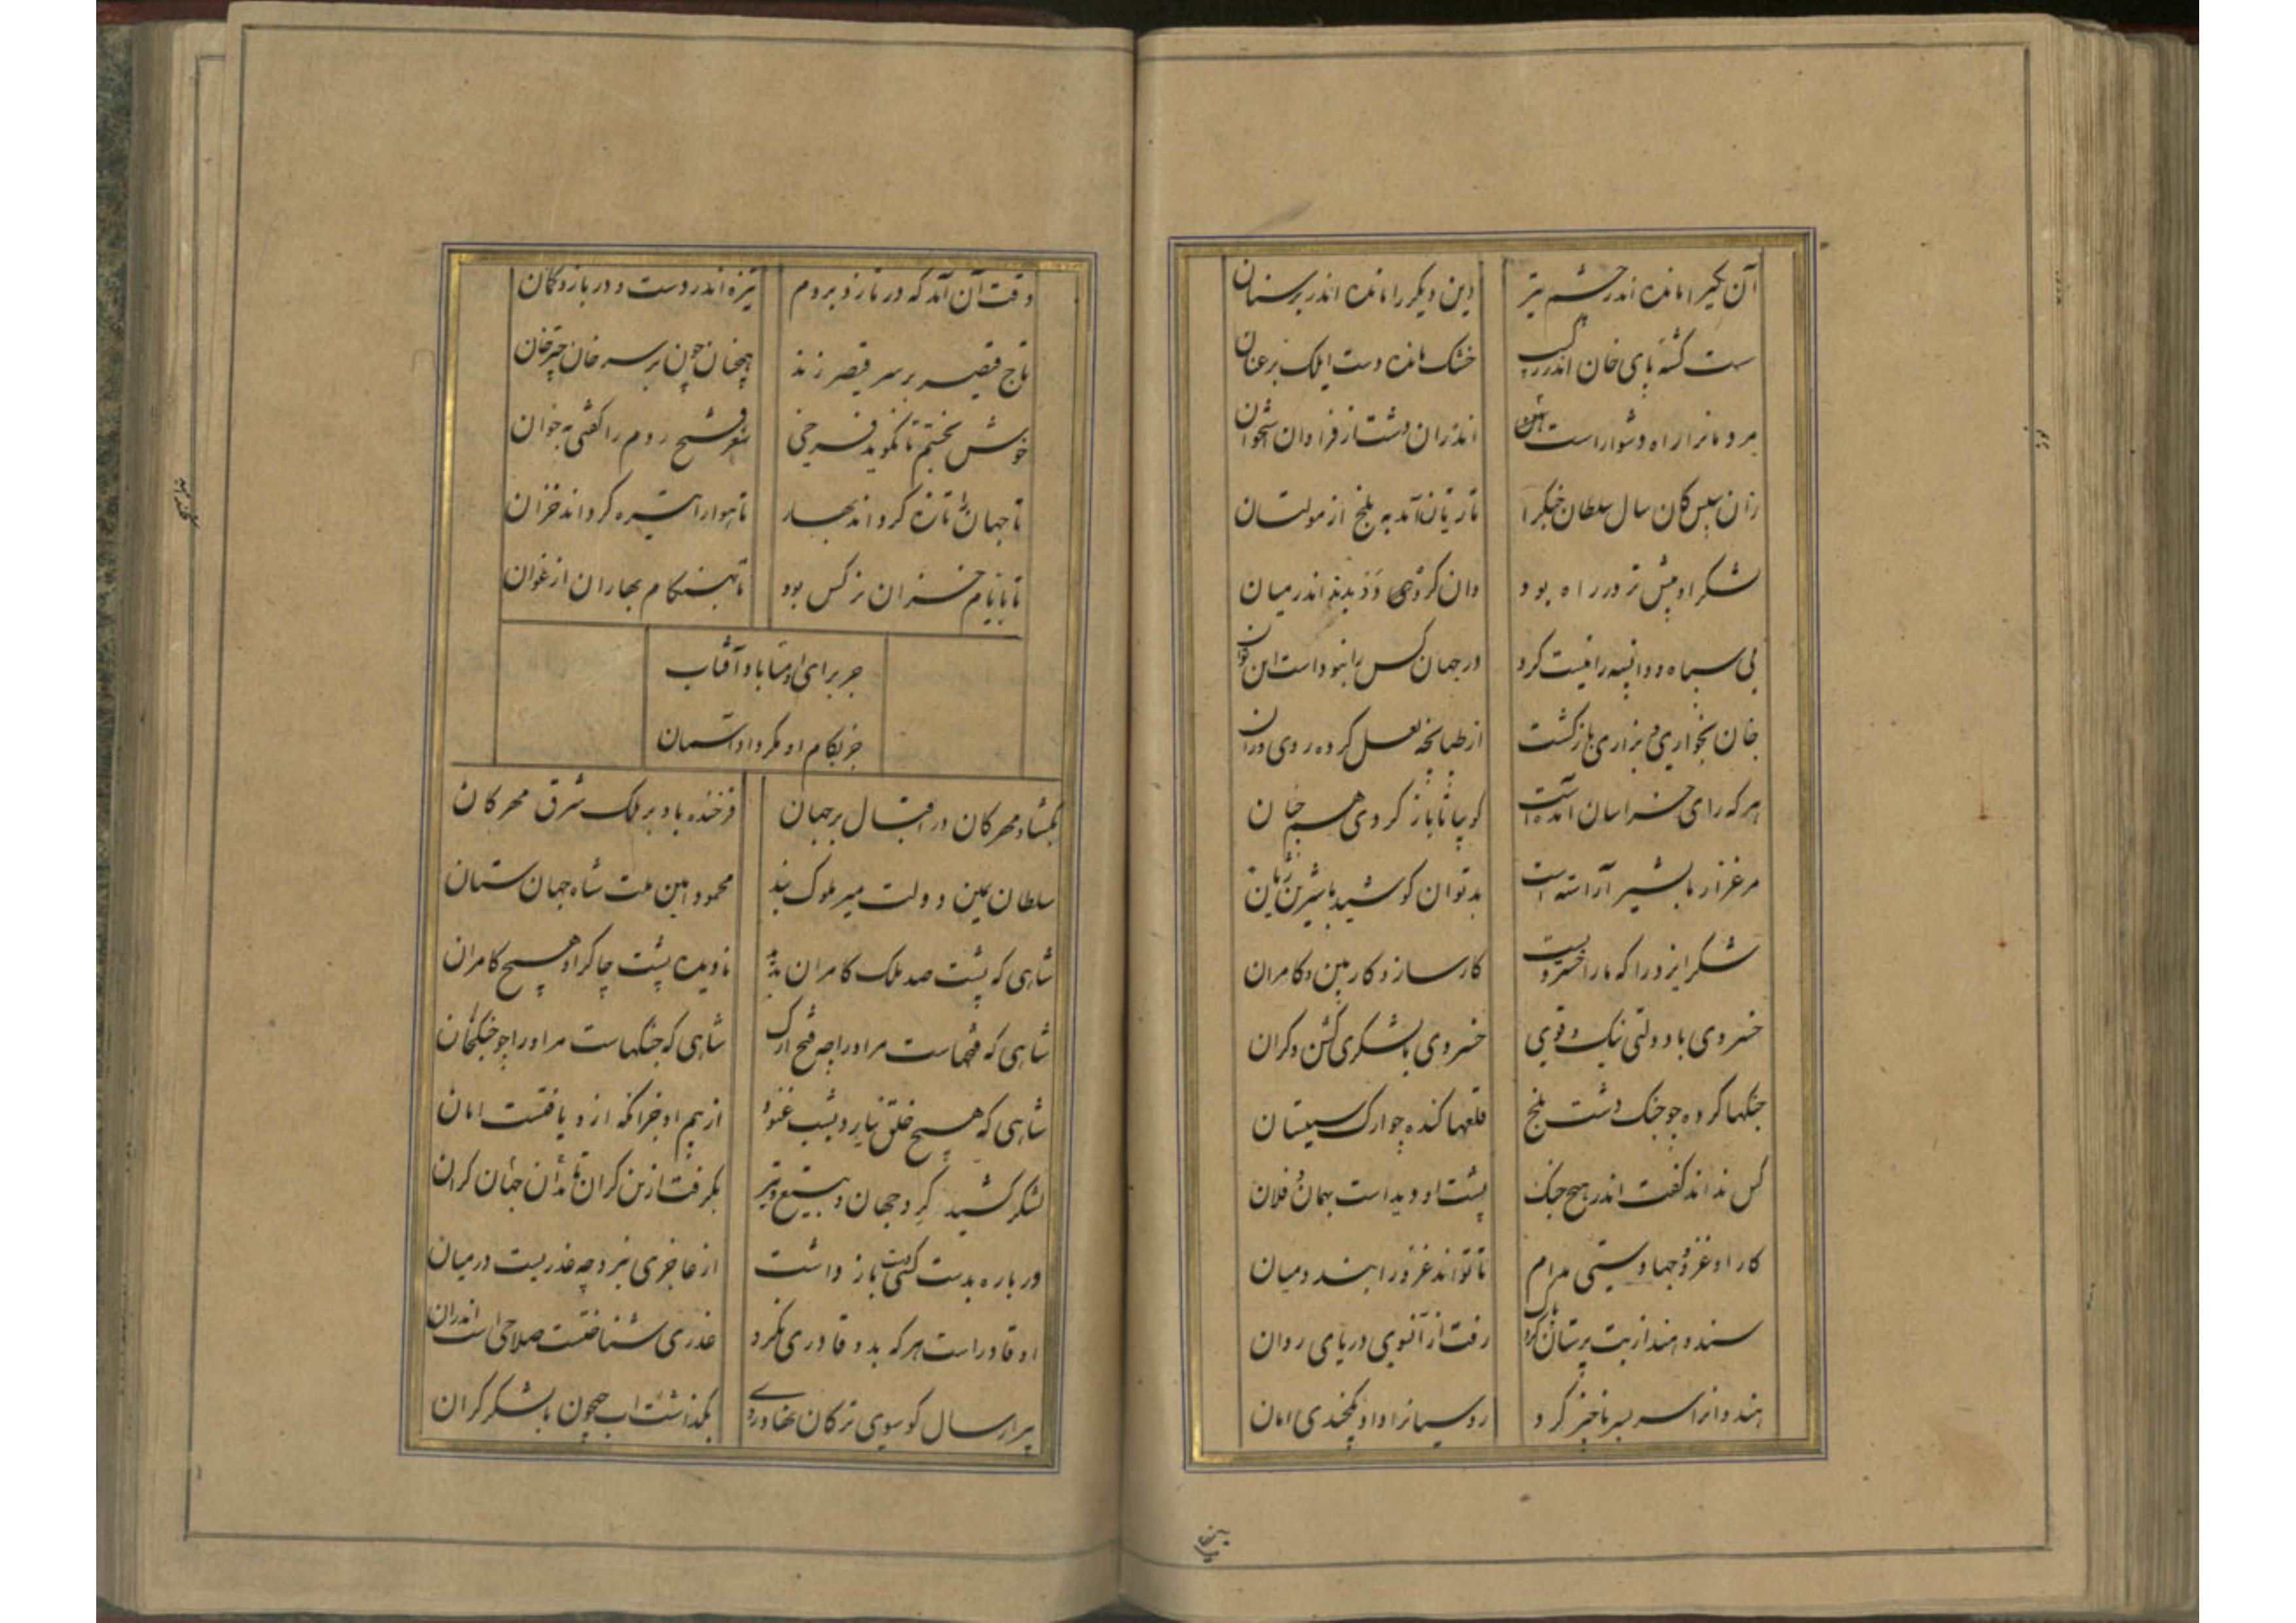 آن یکیرا مانده اندر چشم تیر وین دیگر را مانده اندر بر سنان
سست گشته پای خان اندر رکیب خشک مانده دست ایلک بر عنان
مردمانرا راه دشوار است اندران دشت از فراوان استخوان
زان سپس کان سال سلطان جنگرا تازیان آمد به بلخ از مولتان
لشکر او پیش تر در راه بود وان گروهی دیدند اندر میان
بی سپاه و دانیسه را نیست کرد در جهان کس را نبوداست این توان
خان بخواری و بزاری بازگشت از طپانچه لعل کرده روی وران
هر که رای خراسان آمدست گو بیا تا باز گردی همچنان
مرغزار ما بشیر آراسته است بد توان کوشید با شیر ژیان
شکر ایزد را که ما را خسرویست کارساز و کاربین و کامران
خسروی با دولتی نیک و قوی خسروی با لشکری گشن و گران
جنگها کرده چو جنگ دشت بلخ قلعها کنده چو ارک سیستان
کس نداند گفت اندر هیچ جنگ پشت او دیداست بهمان و فلان
کار او غزو و جهادستی مدام تا تواند غزو را بندد میان
سند و هند از بت پرستان کرد پاک رفت از آنسوی دریای روان
هندوانرا سر بسر ناچیز کرد روسیانرا داد یکچندی امان
وقت آن آمد که در تازد بروم نیزه اندر دست و در بازو کمان
تاج قیصر بر سر قیصر زند همچنان چون بر سر خان چترخان
خوش نخسبم تا نگوید فرخی شعر فتح روم را گفتی بخوان
تا جهان را تازه گرداند بهار تا هوا را تیره گرداند خزان
تا بایام خزان نرگس بود تا بهنگام بهاران ارغوان
جز برای او متاباد آفتاب
جز بکام او مگردا دآسمان
بگشاد مهرکان در اقبال بر جهان فرخنده باد بر ملک شرق مهرکان
سلطان یمین دولت میر ملوک بند محمود امین ملت شاه جهان ستان
شاهی که پشت صد ملک کامران بدید نادیده پشت چاکر او هیچ کامران
شاهی که فتحهاست مر او را چو فتح ارک شاهی که جنگهاست مر او را چو جنگ خان
شاهی که هیچ خلق نیارد بشب غنود از بیم او جز آنکه ازو یافتست امان
لشکر کشید گرد جهان و بتیغ و تیر بگرفت ازین کران تا بدان جهان کران
در باره بدست کسی گیتی باز داشت از عاجزی نبرد چه عذریست در میان
او قادر است هر که بدو قادری نکرد عذری شناختست صلاحی است اندران
پرار سال کو سوی ترکان نهاد روی بگذشت اب جیحون با لشکر گران